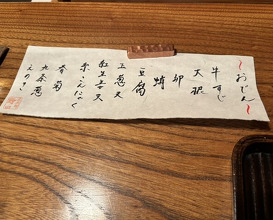 おでん
牛すじ
大根
卵
蛸
豆腐
玉葱天
紅生姜天
糸こんにゃく
春菊
九条葱
えのき